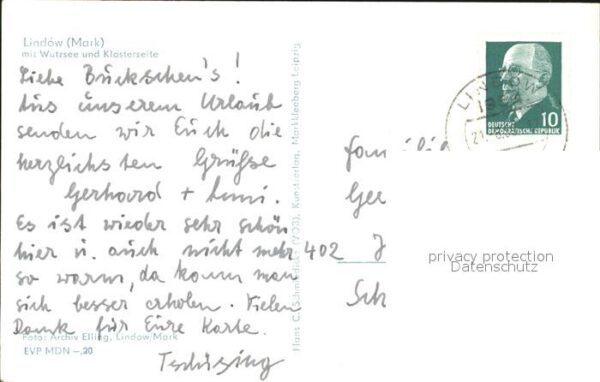 Lindow (Mark)
mit Wutzsee und Klosterseite
Liebe Bückschen's!
Aus unserem Urlaub
senden wir Euch die
herzlichsten Grüße
Gerhard + Anni.
Es ist wieder sehr schön
hier u. auch nicht mehr
so warm, da kann man
sich besser erholen. Vielen
Dank für Eure Karte.
Foto: Archiv Elling, Lindow/Mark
EVP MDN –,20
Hans C. Schmiedicke (VOB), Kunstverlag, Markkleeberg-Leipzig
LINDOW
10
DEUTSCHE
DEMOKRATISCHE REPUBLIK
402 J
Sch
privacy protection
Datenschutz